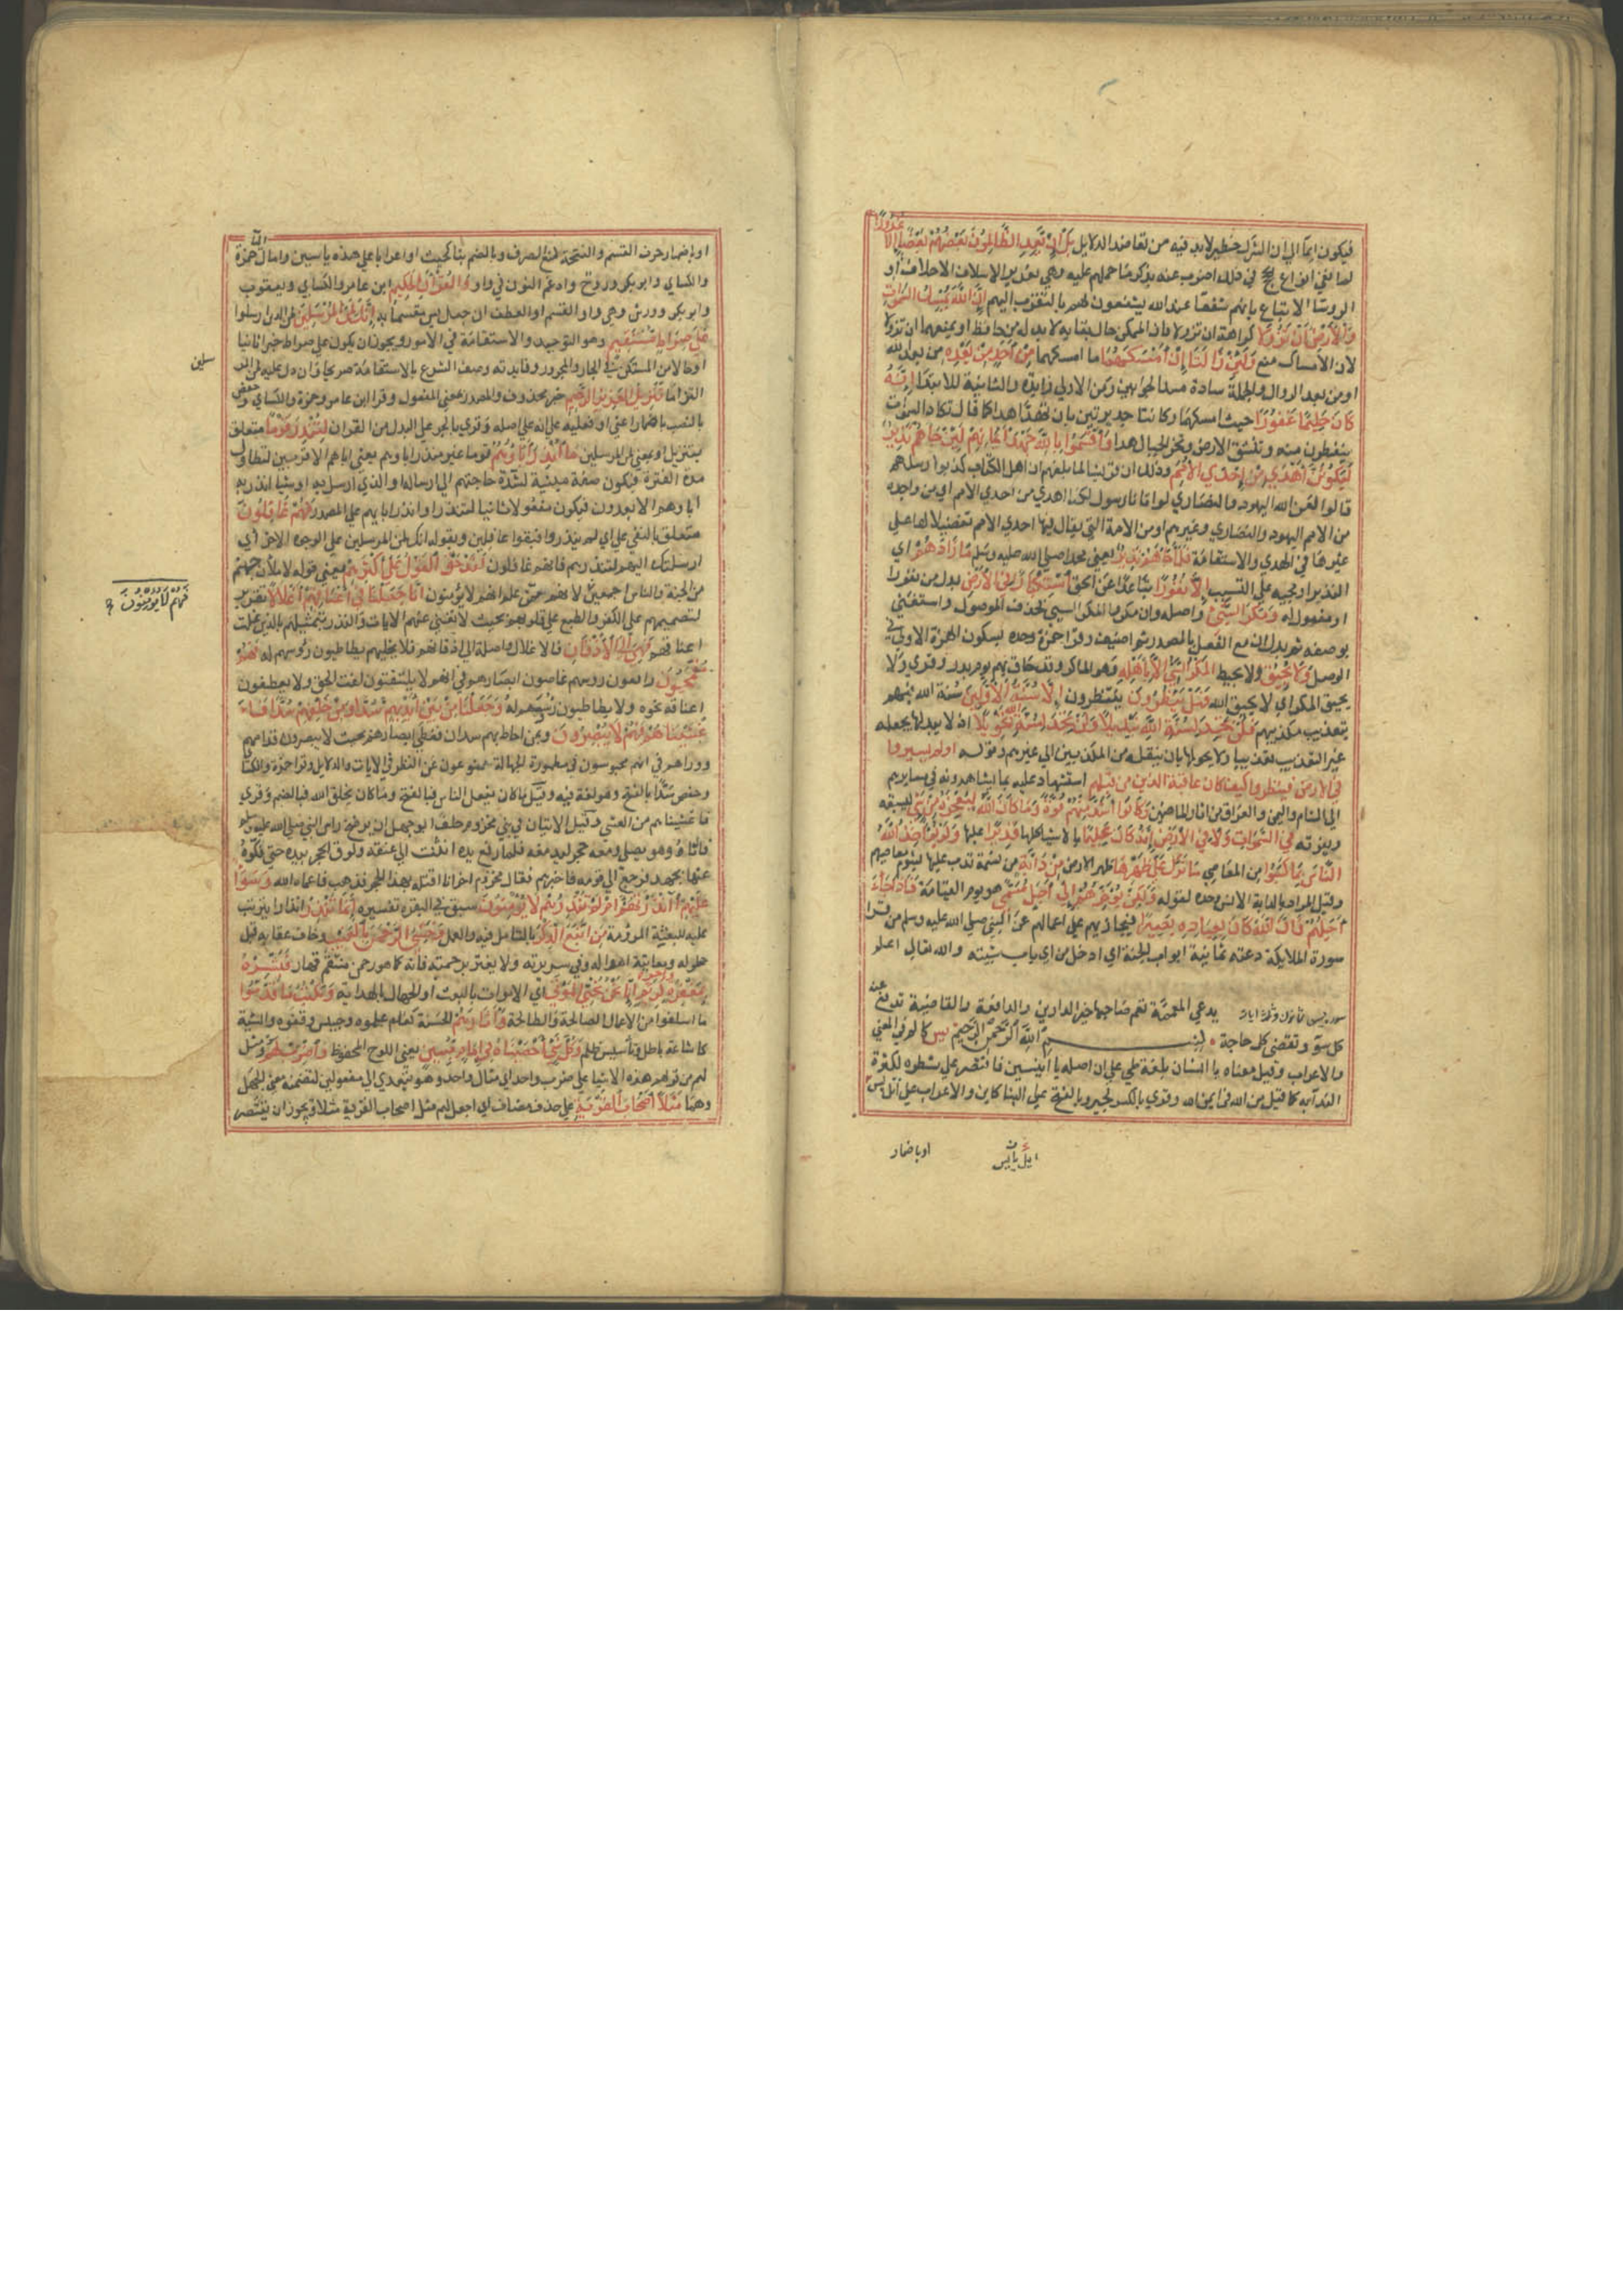 فيكون ايماً الي ان الشرك خطير لابد فيه من تعاضد الدلايل بَلْ اِنْ يَعِدُ الظَّالِمُونَ بَعْضُهُمْ بَعْضًا اِلَّا غُرُورًا
لما نفي انواع الحجج في ذلك اضرب عنه بذكر ما حملهم عليه وهي تغرير الاسلاف الاخلاف او
الروسا الاتباع بانهم شفعا عند الله يشفعون لهم بالتقرب اليهم اِنَّ اللَّهَ يُمْسِكُ السَّمَوَاتِ
وَالْاَرْضَ اَنْ تَزُولَا كراهة ان تزولا فان الممكن حال بقايه لابد له من حافظ او يمنعهما ان تزولا
لان الامساك منع وَلَئِنْ زَالَتَا اِنْ اَمْسَكَهُمَا ما امسكهما مِنْ اَحَدٍ مِنْ بَعْدِهِ من بعد الله
او من بعد الزوال والجملة سادة مسد الجوابين ومن الاولي زايدة والثانية للابتدا اِنَّهُ
كَانَ حَلِيمًا غَفُورًا حيث امسكهما وكانتا جديرتين بان تهدا هدا كما قال تكاد السموات
يتفطرن منه وتنشق الارض وتخر الجبال هدا وَاَقْسَمُوا بِاللَّهِ جَهْدَ اَيْمَانِهِمْ لَئِنْ جَاءَهُمْ نَذِيرٌ
لَيَكُونُنَّ اَهْدَي مِنْ اِحْدَي الْاُمَمِ وذلك ان قريشا لما بلغهم ان اهل الكتاب كذبوا رسلهم
قالوا لعن الله اليهود والنصاري لو اتانا رسول لكنا اهدي من احدي الامم اي من واحدة
من الامم اليهود والنصاري وغيرهم او من الامة التي يقال فيها احدي الامم تفضيلا لها علي
غيرها في الهدي والاستقامة فَلَمَّا جَاءَهُمْ نَذِيرٌ يعني محمدا صلي الله عليه وسلم مَا زَادَهُمْ اي
النذير او مجيه علي التسبب اِلَّا نُفُورًا تباعدا عن الحق اسْتِكْبَارًا فِي الْاَرْضِ بدل من نفورا
او مفعول له وَمَكْرَ السَّيِّئِ واصله وان مكروا المكر السيي فحذف الموصول واستغني
بوصفه ثم بدل ان مع الفعل بالمصدر ثم اضيف وقرا حمزة وحده بسكون الهمزة الاولي في
الوصل وَلَا يَحِيقُ ولا يحيط الْمَكْرُ السَّيِّئُ اِلَّا بِاَهْلِهِ وهو الماكر وقد حاق بهم يوم بدر وقري ولا
يحيق المكر اي لا يحيق الله فَهَلْ يَنْظُرُونَ ينتظرون اِلَّا سُنَّةَ الْاَوَّلِينَ سنة الله فيهم
بتعذيب مكذبيهم فَلَنْ تَجِدَ لِسُنَّةِ اللَّهِ تَبْدِيلًا وَلَنْ تَجِدَ لِسُنَّةِ اللَّهِ تَحْوِيلًا اذ لا يبدلها بجعله
غير التعذيب تعذيبا ولا يحولها بان ينقله من المكذبين الي غيرهم وقوله اولم يسيروا
في الارض فينظروا كيف كان عاقبة الذين من قبلهم استشهاد عليه بما يشاهدونه في مسايرهم
الي الشام واليمن والعراق من اثار الماضين وَكَانُوا اَشَدَّ مِنْهُمْ قُوَّةً وَمَا كَانَ اللَّهُ لِيُعْجِزَهُ مِنْ شَيْءٍ ليسبقه
ويفوته فِي السَّمَوَاتِ وَلَا فِي الْاَرْضِ اِنَّهُ كَانَ عَلِيمًا بالاشيا كلها قَدِيرًا عليها وَلَوْ يُؤَاخِذُ اللَّهُ
النَّاسَ بِمَا كَسَبُوا من المعاصي مَا تَرَكَ عَلَي ظَهْرِهَا ظهر الارض مِنْ دَابَّةٍ من نسمة تدب عليها بشوم معاصيهم
وقيل المراد بالدابة الانس وحده لقوله وَلَكِنْ يُؤَخِّرُهُمْ اِلَي اَجَلٍ مُسَمًّي هو يوم القيامة فَاِذَا جَاءَ
اَجَلُهُمْ فَاِنَّ اللَّهَ كَانَ بِعِبَادِهِ بَصِيرًا فيجازيهم علي اعمالهم عن النبي صلي الله عليه وسلم من قرا
سورة الملايكة دعته ثمانية ابواب الجنة اي ادخل من اي باب شيته والله تعالي اعلم
سورة يس ثمانون وثلاث ايات يدعي المعمة تعم صاحبها خير الدارين والدافعة والقاضية تدفع عنه
كل سوء وتقضي كل حاجة بِسْمِ اللَّهِ الرَّحْمَنِ الرَّحِيمِ يس كالم في المعني
والاعراب وقيل معناه يا انسان بلغة طي علي ان اصله يا انيسين فاقتصر علي شطره لكثرة
الندا به كما قيل من الله في ايمن الله وقري بالكسر كجير وبالفتح علي البنا كاين والاعراب علي اتل يس
اوباضمار
اوباضمار حرف القسم والفتحة لمنع الصرف وبالضم بنا كحيث او اعرابا علي هذه ياسين وامال اليا حمزة
والكساي وابو بكر وروح وادغم النون في واو وَالْقُرْآنِ الْحَكِيمِ ابن عامر والكساي ويعقوب
وابو بكر وورش وهي واو القسم او العطف ان جعل يس مقسما به اِنَّكَ لَمِنَ الْمُرْسَلِينَ لمن الذين ارسلوا
عَلَي صِرَاطٍ مُسْتَقِيمٍ وهو التوحيد والاستقامة في الامور ويجوز ان يكون علي صراط خبرا ثانيا
او حالا من المستكن في الجار والمجرور وفايدته وصف الشرع بالاستقامة صريحا وان دل عليه لمن المر
سلين
التزاما تَنْزِيلَ الْعَزِيزِ الرَّحِيمِ خبر محذوف والمصدر بمعني المفعول وقرا ابن عامر وحمزة والكساي وحفص
بالنصب باضمار اعني او فعله علي انه علي اصله وقري بالجر علي البدل من القران لِتُنْذِرَ قَوْمًا متعلق
بتنزيل او بمعني لمن المرسلين مَا اُنْذِرَ آبَاؤُهُمْ قوما غير منذر اباوهم يعني اباهم الاقربين لتطاول
مدة الفترة فيكون صفة مبينة لشدة حاجتهم الي ارساله او الذي ارسل به او شيا انذر به
اباوهم الابعدون فيكون مفعولا ثانيا لتنذر او انذار اباهم علي المصدر فَهُمْ غَافِلُونَ
متعلق بالنفي علي اي لم ينذروا فبقوا غافلين وبقوله انك لمن المرسلين علي الوجوه الاخر اي
ارسلتك اليهم لتنذرهم فانهم غافلون لَقَدْ حَقَّ الْقَوْلُ عَلَي اَكْثَرِهِمْ يعني قوله لاملان جهنم
من الجنة والناس اجمعين لانهم ممن علم انهم لا يؤمنون اِنَّا جَعَلْنَا فِي اَعْنَاقِهِمْ اَغْلَالًا تقرير
فَهُمْ لَا يُؤْمِنُونَ
لتصميمهم علي الكفر والطبع علي قلوبهم بحيث لا يغني عنهم الايات والنذر بتمثيلهم بالذين غلت
اعناقهم فَهِيَ اِلَي الْاَذْقَانِ فالاغلال واصلة الي اذقانهم فلا يخليهم يطاطيون رؤسهم له فَهُمْ
مُقْمَحُونَ رافعون روسهم غاضون ابصارهم في انهم لا يلتفتون لفت الحق ولا يعطفون
اعناقهم نحوه ولا يطاطيون رؤسهم له وَجَعَلْنَا مِنْ بَيْنِ اَيْدِيهِمْ سَدًّا وَمِنْ خَلْفِهِمْ سَدًّا فَاَ
غْشَيْنَاهُمْ فَهُمْ لَا يُبْصِرُونَ وبمن احاط بهم سدان فغطي ابصارهم بحيث لا يبصرون قدامهم
ووراهم في انهم محبوسون في مطمورة الجهالة ممنوعون عن النظر في الايات والدلايل وقرا حمزة والكسا
وحفص سدا بالفتح وهو لغة فيه وقيل ما كان بفعل الناس فبالفتح وما كان بخلق الله فبالضم وقري
فاعشيناهم من العشي وقيل الايتان في بني مخزوم حلف ابو جهل ان يرضخ راس النبي صلي الله عليه وسلم
فاتاه وهو يصلي ومعه حجر ليدمغه فلما رفع يده انثنت الي عنقه ولزق الحجر بيده حتي فكوه
عنها بجهد فرجع الي قومه فاخبرهم فقال مخزومي اخر انا اقتله بهذا الحجر فذهب فاعماه الله وَسَوَاءٌ
عَلَيْهِمْ ءَاَنْذَرْتَهُمْ اَمْ لَمْ تُنْذِرْهُمْ لَا يُؤْمِنُونَ سبق في البقرة تفسيره اِنَّمَا تُنْذِرُ انذارا يترتب
عليه البغية المرومة مَنِ اتَّبَعَ الذِّكْرَ بالتامل فيه والعمل وَخَشِيَ الرَّحْمَنَ بِالْغَيْبِ وخاف عقابه قبل
حلوله ومعاينة اهواله وفي سريرته ولا يغتر برحمته فانه كما هو رحمن منتقم قهار فَبَشِّرْهُ
بِمَغْفِرَةٍ وَاَجْرٍ كَرِيمٍ اِنَّا نَحْنُ نُحْيِي الْمَوْتَي اي الاموات بالبعث او الجهال بالهداية وَنَكْتُبُ مَا قَدَّمُوا
ما اسلفوا من الاعمال الصالحة والطالحة وَآثَارَهُمْ الحسنة كعلم علموه وحبيس وقفوه والسيئة
كاشاعة باطل وتاسيس ظلم وَكُلَّ شَيْءٍ اَحْصَيْنَاهُ فِي اِمَامٍ مُبِينٍ يعني اللوح المحفوظ وَاضْرِبْ لَهُمْ ومثل
لهم من قولهم هذه الاشيا علي ضرب واحد اي مثال واحد وهو يتعدي الي مفعولين لتضمنه معني الجعل
وهما مَثَلًا اَصْحَابَ الْقَرْيَةِ علي حذف مضاف اي اجعل لهم مثل اصحاب القرية مثلا ويجوز ان يقتصر